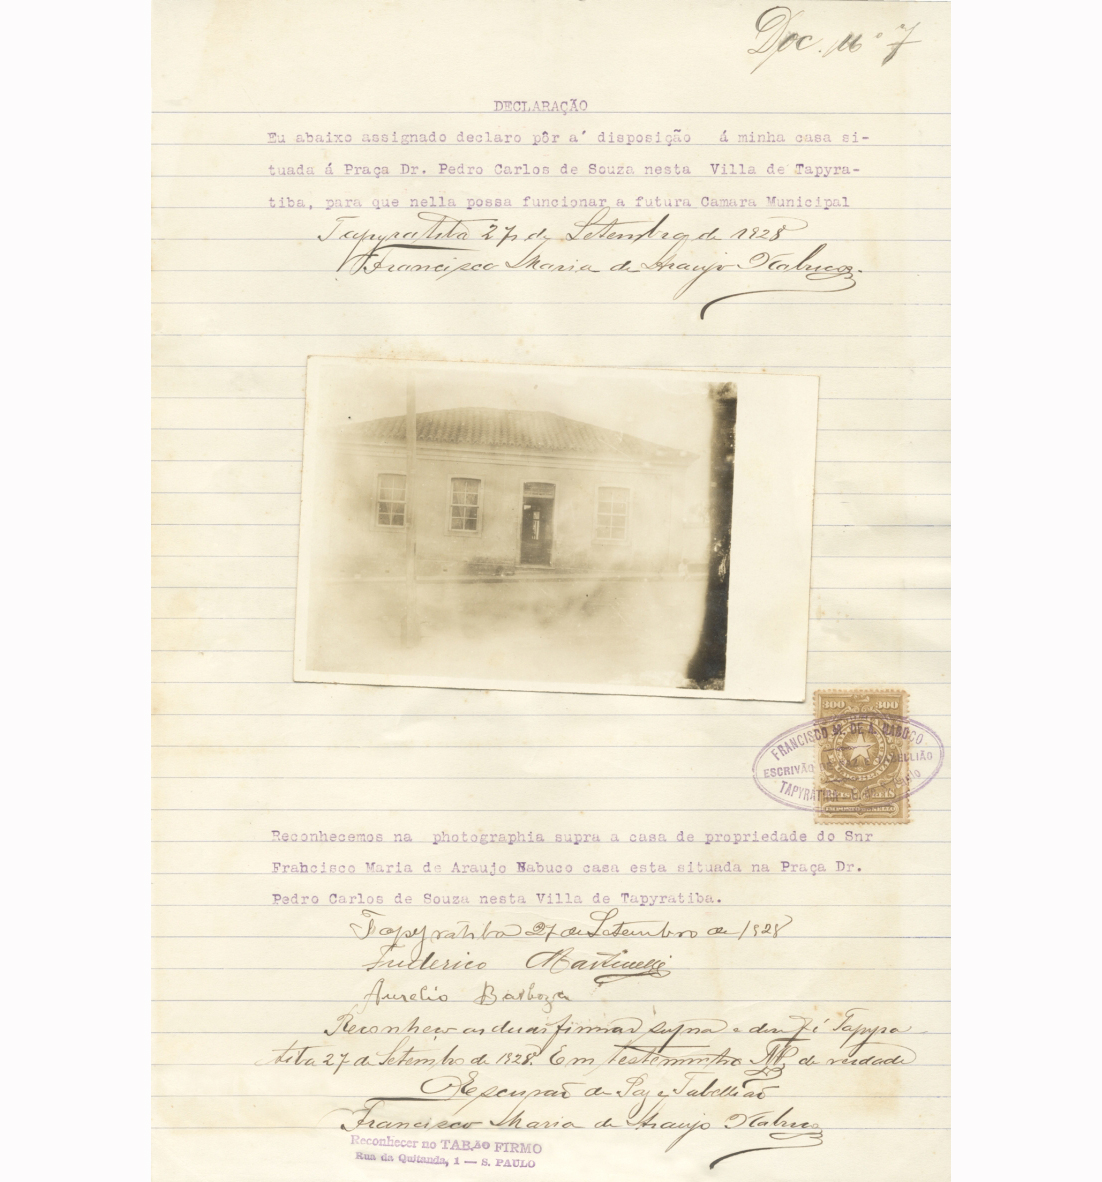 Doc. Nº 7
DECLARAÇÃO
Eu abaixo assignado declaro pôr a' disposição á minha casa si-
tuada á Praça Dr. Pedro Carlos de Souza nesta Villa de Tapyra-
tiba, para que nella possa funcionar a futura Camara Municipal
Tapyratiba 27 de Setembro de 1928
Francisco Maria de Araujo Nabuco
300 300
FRANCISCO M. DE A. NABUCO
ESCRIVÃO DE PAZ E TABELLIÃO
TAPYRATIBA
Reconhecemos na photographia supra a casa de propriedade do Snr
Francisco Maria de Araujo Nabuco casa esta situada na Praça Dr.
Pedro Carlos de Souza nesta Villa de Tapyratiba.
Tapyratiba 27 de Setembro de 1928
Frederico Martinelli
Aurelio Barboza
Reconheço as duas firmas supra e dou fé Tapyra
tiba 27 de Setembro de 1928. Em testemunho da verdade
O Escrivão de Paz e Tabellião
Francisco Maria de Araujo Nabuco
Reconhecer no TAB.ÃO FIRMO
Rua da Quitanda, 1 — S. PAULO